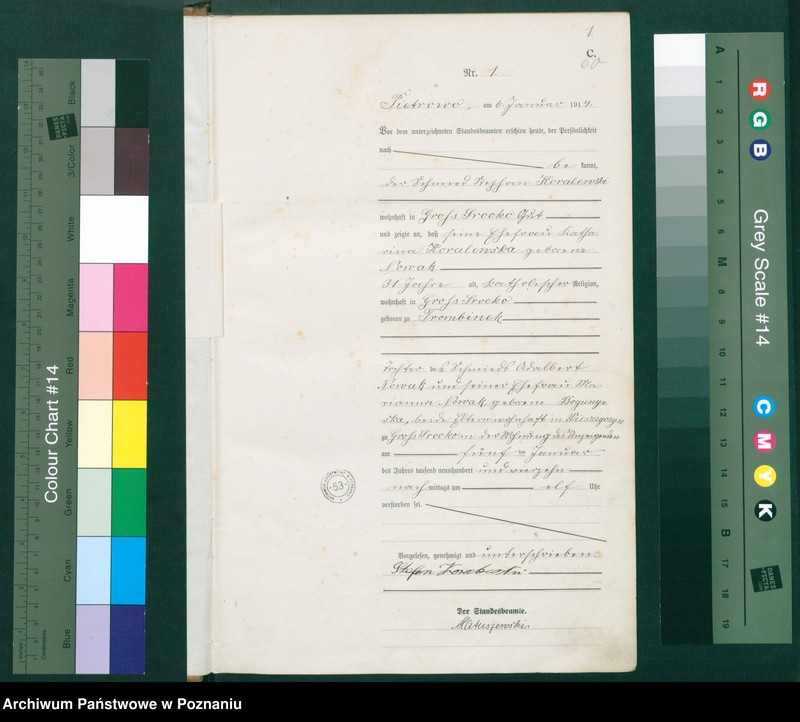 1
C.
60
Nr. 1
Pietrowo, am 6 Januar 1914.
Vor dem unterzeichneten Standesbeamten erschien heute, der Persönlichkeit
nach be kannt,
der Schmied Stephan Koralewski
wohnhaft in Groß Srocko Gut
und zeigte an, daß seine Ehefrau Katha
rina Koralewska geborene
Nowak
31 Jahre alt, katholischer Religion,
wohnhaft in Groß Srocko
geboren zu Trombinek
Tochter des Schmieds Adalbert
Nowak und seiner Ehefrau Ma
rianna Nowak geborene
ska, beide Eltern wohnhaft in
zu Groß Srocko in der Wohnung des Anzeigenden
am fünf ten Januar
des Jahres tausend neunhundert und vierzehn
nach mittags um elf Uhr
verstorben sei.
Vorgelesen, genehmigt und unterschrieben
Stefan
Der Standesbeamte.
Matuszewski
53
Colour Chart #14
Black
3/Color
White
Magenta
Red
Yellow
Green
Cyan
Blue
Centimetres
DANES
PICTA
Grey Scale #14
R
G
B
C
M
Y
K
A
1
2
3
4
5
6
M
8
9
10
11
12
13
14
15
B
17
18
19
DANES
PICTA
Archiwum Państwowe w Poznaniu